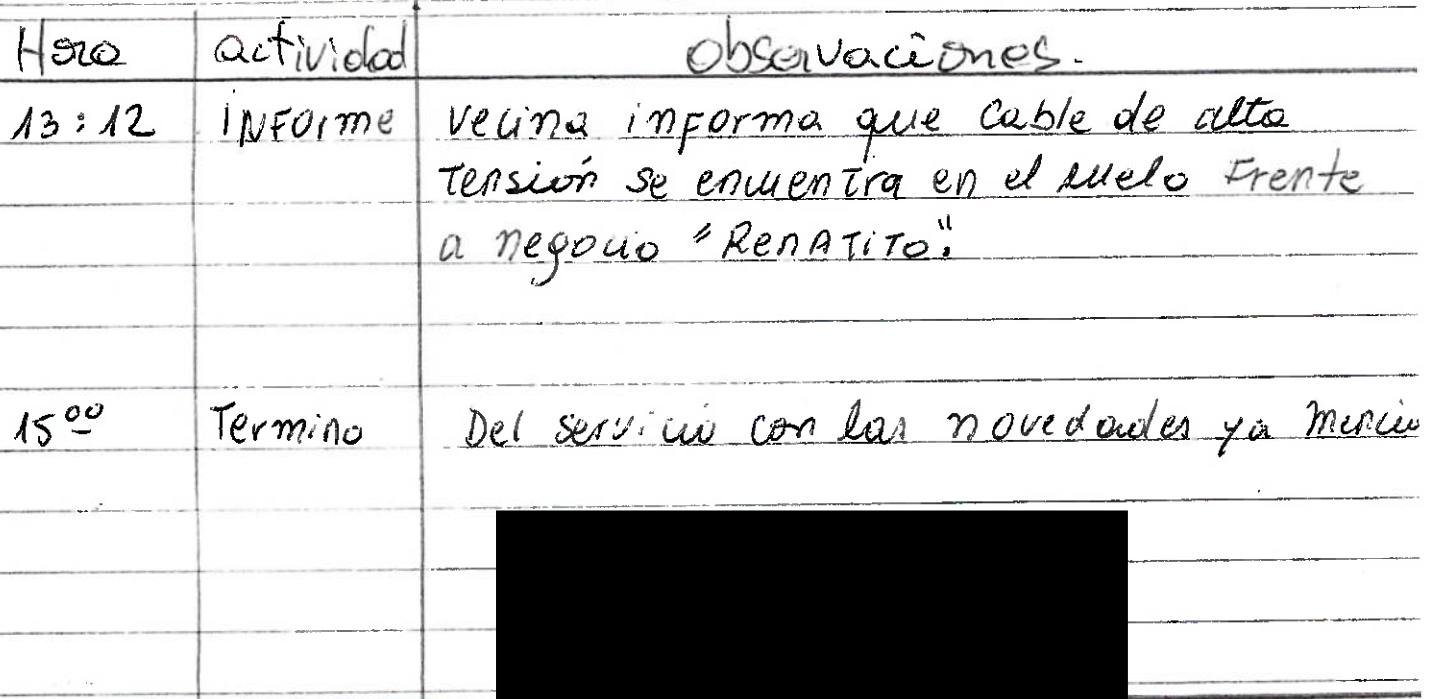 Hora actividad observaciones.
13:12 INForme vecina informa que cable de alta
Tensión se encuentra en el suelo Frente
a negocio "RenATiTo".
15⁰⁰ Termino Del servicio con las novedades ya